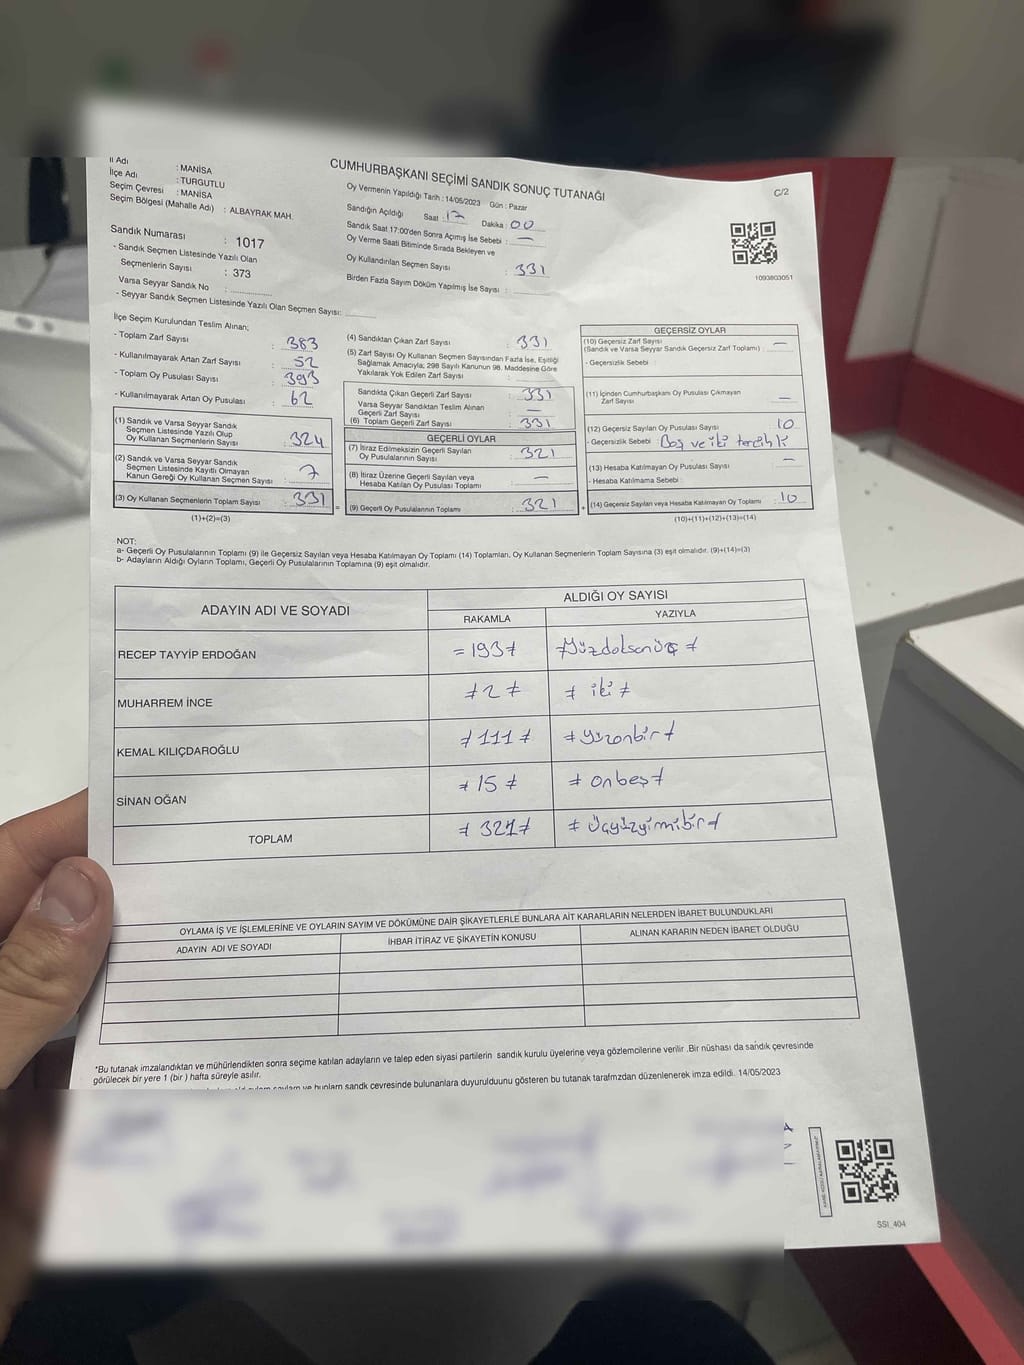 İl Adı : MANİSA
İlçe Adı : TURGUTLU
Seçim Çevresi : MANİSA
Seçim Bölgesi (Mahalle Adı) : ALBAYRAK MAH.
Sandık Numarası : 1017
- Sandık Seçmen Listesinde Yazılı Olan
Seçmenlerin Sayısı : 373
Varsa Seyyar Sandık No :
- Seyyar Sandık Seçmen Listesinde Yazılı Olan Seçmen Sayısı:
CUMHURBAŞKANI SEÇİMİ SANDIK SONUÇ TUTANAĞI
C/2
Oy Vermenin Yapıldığı Tarih : 14/05/2023 Gün : Pazar
Sandığın Açıldığı Saat : 17 Dakika : 00
Sandık Saat 17:00'den Sonra Açımış İse Sebebi : —
Oy Verme Saati Bitiminde Sırada Bekleyen ve
Oy Kullandırılan Seçmen Sayısı : 331
Birden Fazla Sayım Döküm Yapılmış İse Sayısı :
1093803051
İlçe Seçim Kurulundan Teslim Alınan;
- Toplam Zarf Sayısı : 383
- Kullanılmayarak Artan Zarf Sayısı : 52
- Toplam Oy Pusulası Sayısı : 393
- Kullanılmayarak Artan Oy Pusulası : 62
(1) Sandık ve Varsa Seyyar Sandık
Seçmen Listesinde Yazılı Olup
Oy Kullanan Seçmenlerin Sayısı : 324
(2) Sandık ve Varsa Seyyar Sandık
Seçmen Listesinde Kayıtlı Olmayan
Kanun Gereği Oy Kullanan Seçmen Sayısı : 7
(3) Oy Kullanan Seçmenlerin Toplam Sayısı : 331
(1)+(2)=(3)
(4) Sandıktan Çıkan Zarf Sayısı : 331
(5) Zarf Sayısı Oy Kullanan Seçmen Sayısından Fazla İse, Eşitliği
Sağlamak Amacıyla; 298 Sayılı Kanunun 98. Maddesine Göre
Yakılarak Yok Edilen Zarf Sayısı :
Sandıkta Çıkan Geçerli Zarf Sayısı : 331
Varsa Seyyar Sandıktan Teslim Alınan
Geçerli Zarf Sayısı : —
(6) Toplam Geçerli Zarf Sayısı : 331
GEÇERLİ OYLAR
(7) İtiraz Edilmeksizin Geçerli Sayılan
Oy Pusulalarının Sayısı : 321
(8) İtiraz Üzerine Geçerli Sayılan veya
Hesaba Katılan Oy Pusulası Toplamı : —
= (9) Geçerli Oy Pusulalarının Toplamı : 321
GEÇERSİZ OYLAR
(10) Geçersiz Zarf Sayısı
(Sandık ve Varsa Seyyar Sandık Geçersiz Zarf Toplamı) : —
- Geçersizlik Sebebi :
(11) İçinden Cumhurbaşkanı Oy Pusulası Çıkmayan
Zarf Sayısı : —
(12) Geçersiz Sayılan Oy Pusulası Sayısı : 10
- Geçersizlik Sebebi : Boş ve iki tercihli
(13) Hesaba Katılmayan Oy Pusulası Sayısı : —
- Hesaba Katılmama Sebebi :
+ (14) Geçersiz Sayılan veya Hesaba Katılmayan Oy Toplamı : 10
(10)+(11)+(12)+(13)=(14)
NOT:
a- Geçerli Oy Pusulalarının Toplamı (9) ile Geçersiz Sayılan veya Hesaba Katılmayan Oy Toplamı (14) Toplamları, Oy Kullanan Seçmenlerin Toplam Sayısına (3) eşit olmalıdır. (9)+(14)=(3)
b- Adayların Aldığı Oyların Toplamı, Geçerli Oy Pusulalarının Toplamına (9) eşit olmalıdır.
ADAYIN ADI VE SOYADI ALDIĞI OY SAYISI
RAKAMLA YAZIYLA
RECEP TAYYİP ERDOĞAN = 193 ≠ ≠ Yüzdoksanüç ≠
MUHARREM İNCE ≠ 2 ≠ ≠ iki ≠
KEMAL KILIÇDAROĞLU ≠ 111 ≠ ≠ yüzonbir ≠
SİNAN OĞAN ≠ 15 ≠ ≠ onbeş ≠
TOPLAM ≠ 321 ≠ ≠ üçyüzyirmibir ≠
OYLAMA İŞ VE İŞLEMLERİNE VE OYLARIN SAYIM VE DÖKÜMÜNE DAİR ŞİKAYETLERLE BUNLARA AİT KARARLARIN NELERDEN İBARET BULUNDUKLARI
ADAYIN ADI VE SOYADI İHBAR İTİRAZ VE ŞİKAYETİN KONUSU ALINAN KARARIN NEDEN İBARET OLDUĞU
*Bu tutanak imzalandıktan ve mühürlendikten sonra seçime katılan adayların ve talep eden siyasi partilerin sandık kurulu üyelerine veya gözlemcilerine verilir .Bir nüshası da sandık çevresinde
görülecek bir yere 1 (bir ) hafta süreyle asılır.
ve bunların sandık çevresinde bulunanlara duyurulduunu gösteren bu tutanak tarafımzdan düzenlenerek imza edildi. 14/05/2023
SSI_404